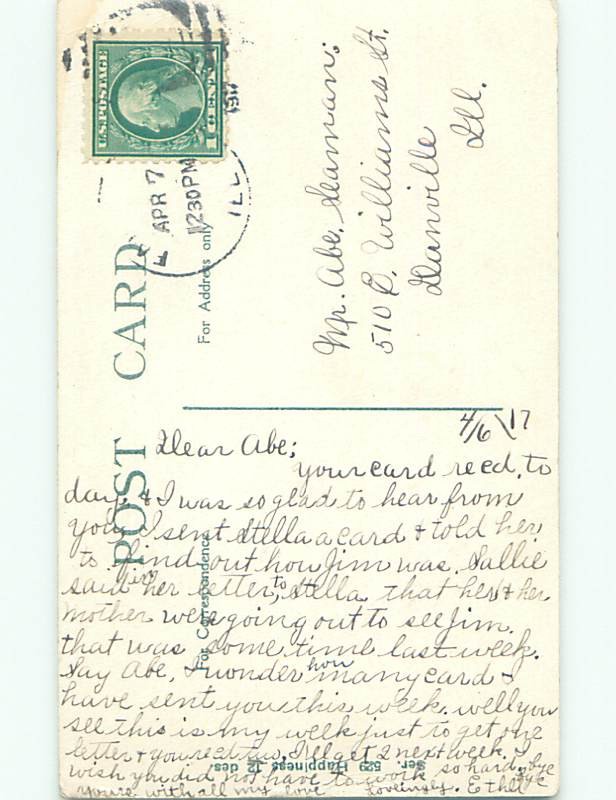 U.S. POSTAGE
1 CENT 1
APR 7
1230 PM
ILL.
POST CARD
For Address only.
Mr. Abe. Seaman;
510 E. Williams St.
Danville
Ill.
For Correspondence.
4/6 17
Dear Abe;
your card recd. to
day & I was so glad to hear from
you I sent Stella a card & told her
to find out how Jim was. Sallie
said in her letter, to Stella that her & her
mother were going out to see Jim.
that was some time last week.
Say Abe, I wonder how many card I
have sent you this week. well you
see this is my week just to get one
letter & you recd two, I'll get 2 next week. I
wish you did not have to work so hard. bye bye
yours with all my love Lovingly. Ethel
Ser. 529 Happiness 12 des.